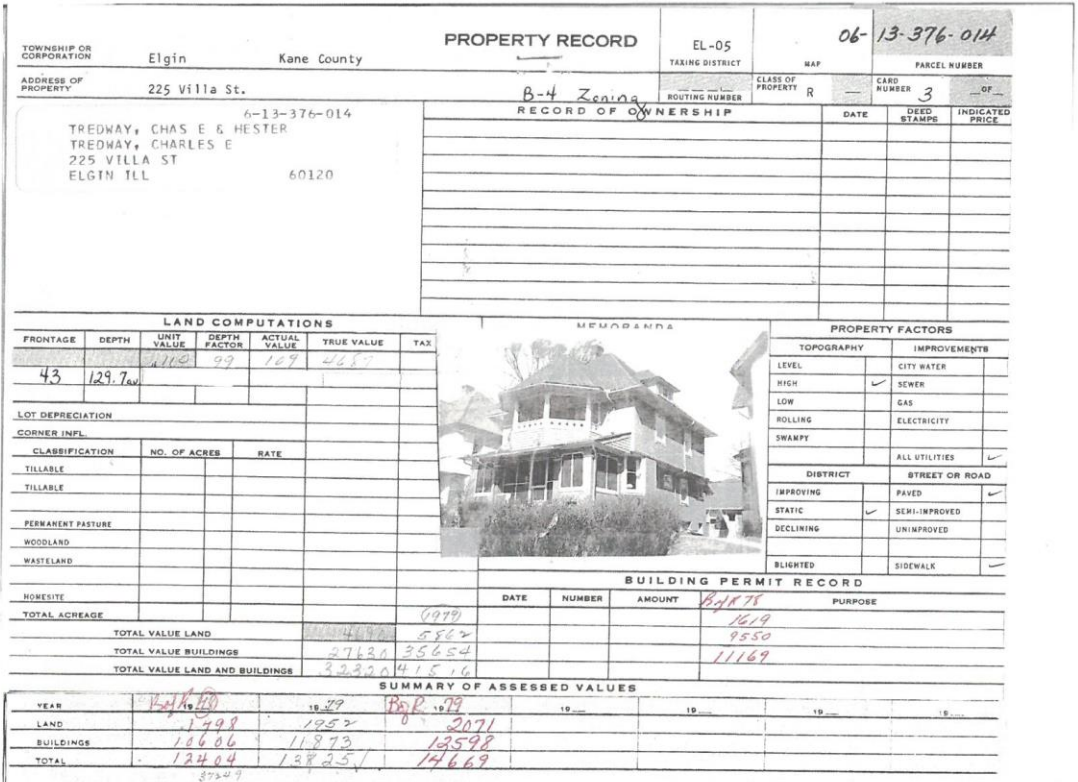 PROPERTY RECORD
06-13-376-014
TOWNSHIP OR CORPORATION Elgin Kane County
EL-05
TAXING DISTRICT MAP PARCEL NUMBER
ADDRESS OF PROPERTY 225 Villa St.
B-4 Zoning
ROUTING NUMBER
CLASS OF PROPERTY R —
CARD NUMBER 3 OF
6-13-376-014
TREDWAY, CHAS E & HESTER
TREDWAY, CHARLES E
225 VILLA ST
ELGIN ILL 60120
RECORD OF OWNERSHIP DATE DEED STAMPS INDICATED PRICE
LAND COMPUTATIONS
FRONTAGE DEPTH UNIT VALUE DEPTH FACTOR ACTUAL VALUE TRUE VALUE TAX
99 109
43 129.7 av.
LOT DEPRECIATION
CORNER INFL.
CLASSIFICATION NO. OF ACRES RATE
TILLABLE
TILLABLE
PERMANENT PASTURE
WOODLAND
WASTELAND
HOMESITE
TOTAL ACREAGE (1979)
TOTAL VALUE LAND 5862
TOTAL VALUE BUILDINGS 27630 35654
TOTAL VALUE LAND AND BUILDINGS 32320 41516
MEMORANDA
PROPERTY FACTORS
TOPOGRAPHY IMPROVEMENTS
LEVEL CITY WATER
HIGH ✓ SEWER
LOW GAS
ROLLING ELECTRICITY
SWAMPY
ALL UTILITIES ✓
DISTRICT STREET OR ROAD
IMPROVING PAVED ✓
STATIC ✓ SEMI-IMPROVED
DECLINING UNIMPROVED
BLIGHTED SIDEWALK ✓
BUILDING PERMIT RECORD
DATE NUMBER AMOUNT PURPOSE
B of R 78
1619
9550
11169
SUMMARY OF ASSESSED VALUES
YEAR B of R 19 19 79 B of R 19 79 19 19 19 19
LAND 1798 1952 2071
BUILDINGS 10606 11873 12598
TOTAL 12404 13825 14669
37249